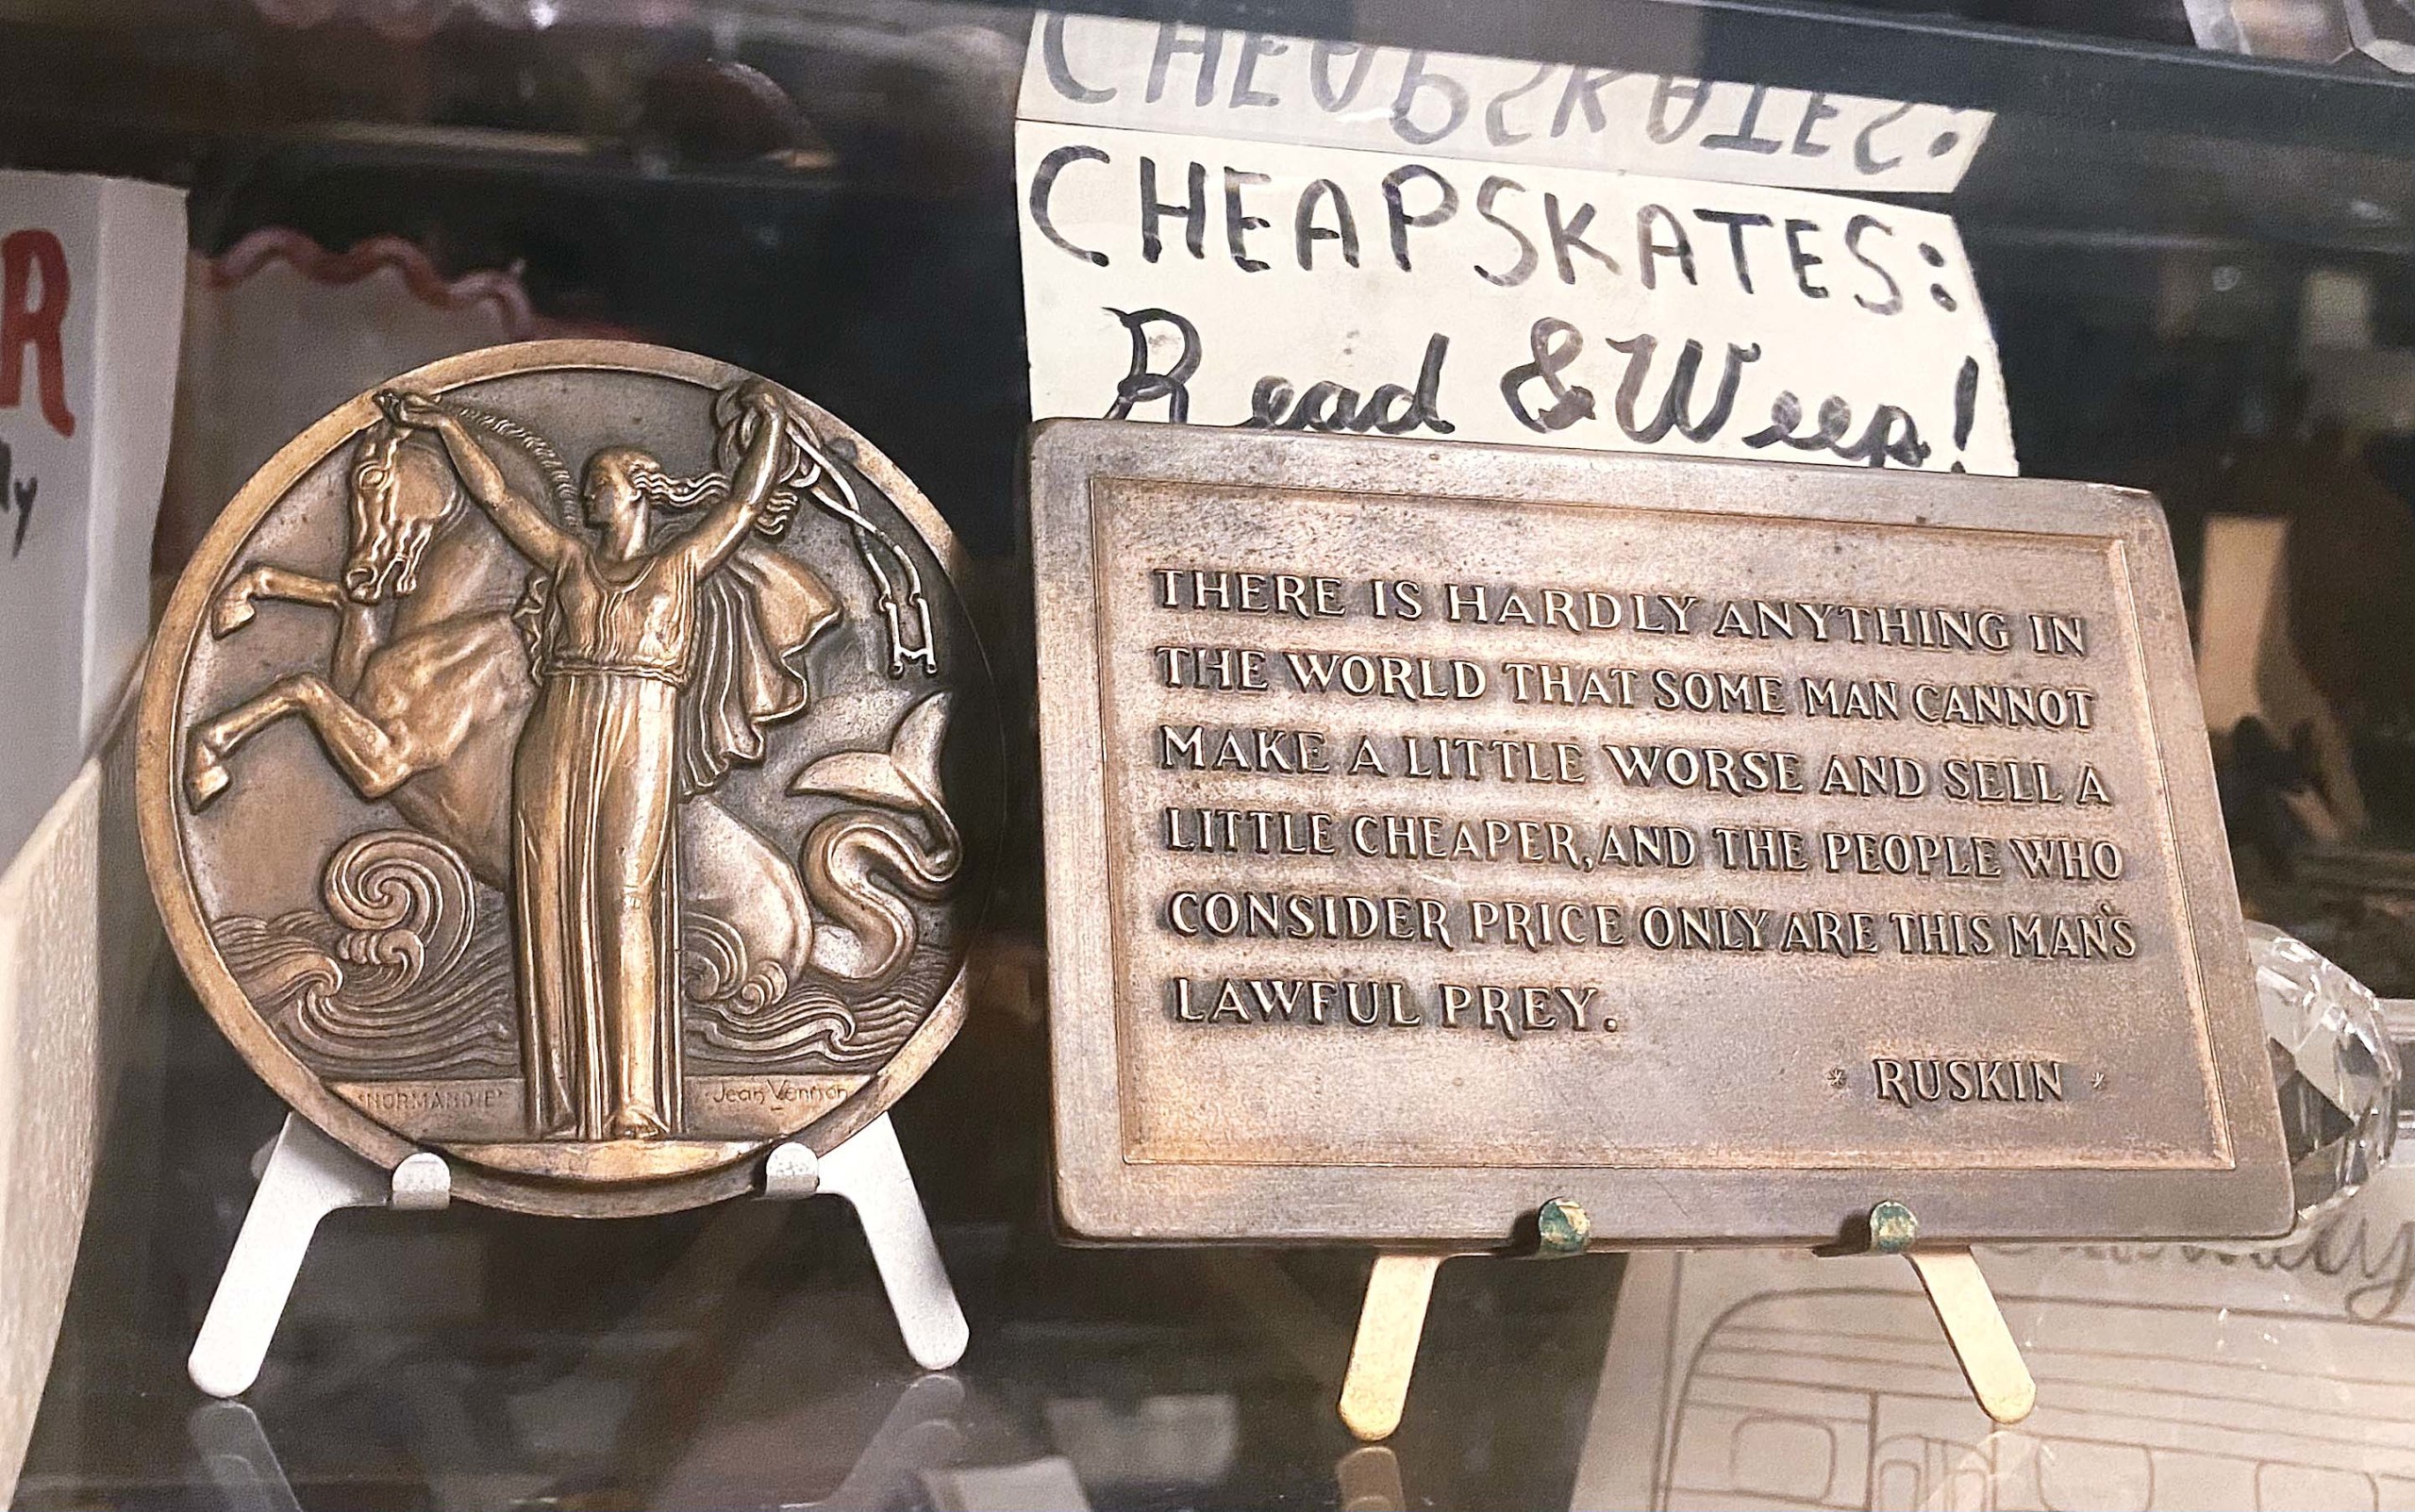 CHEAPSKATES:
Read & Weep!
THERE IS HARDLY ANYTHING IN
THE WORLD THAT SOME MAN CANNOT
MAKE A LITTLE WORSE AND SELL A
LITTLE CHEAPER, AND THE PEOPLE WHO
CONSIDER PRICE ONLY ARE THIS MAN'S
LAWFUL PREY.
* RUSKIN *
"NORMANDIE"
Jean Vernon
R